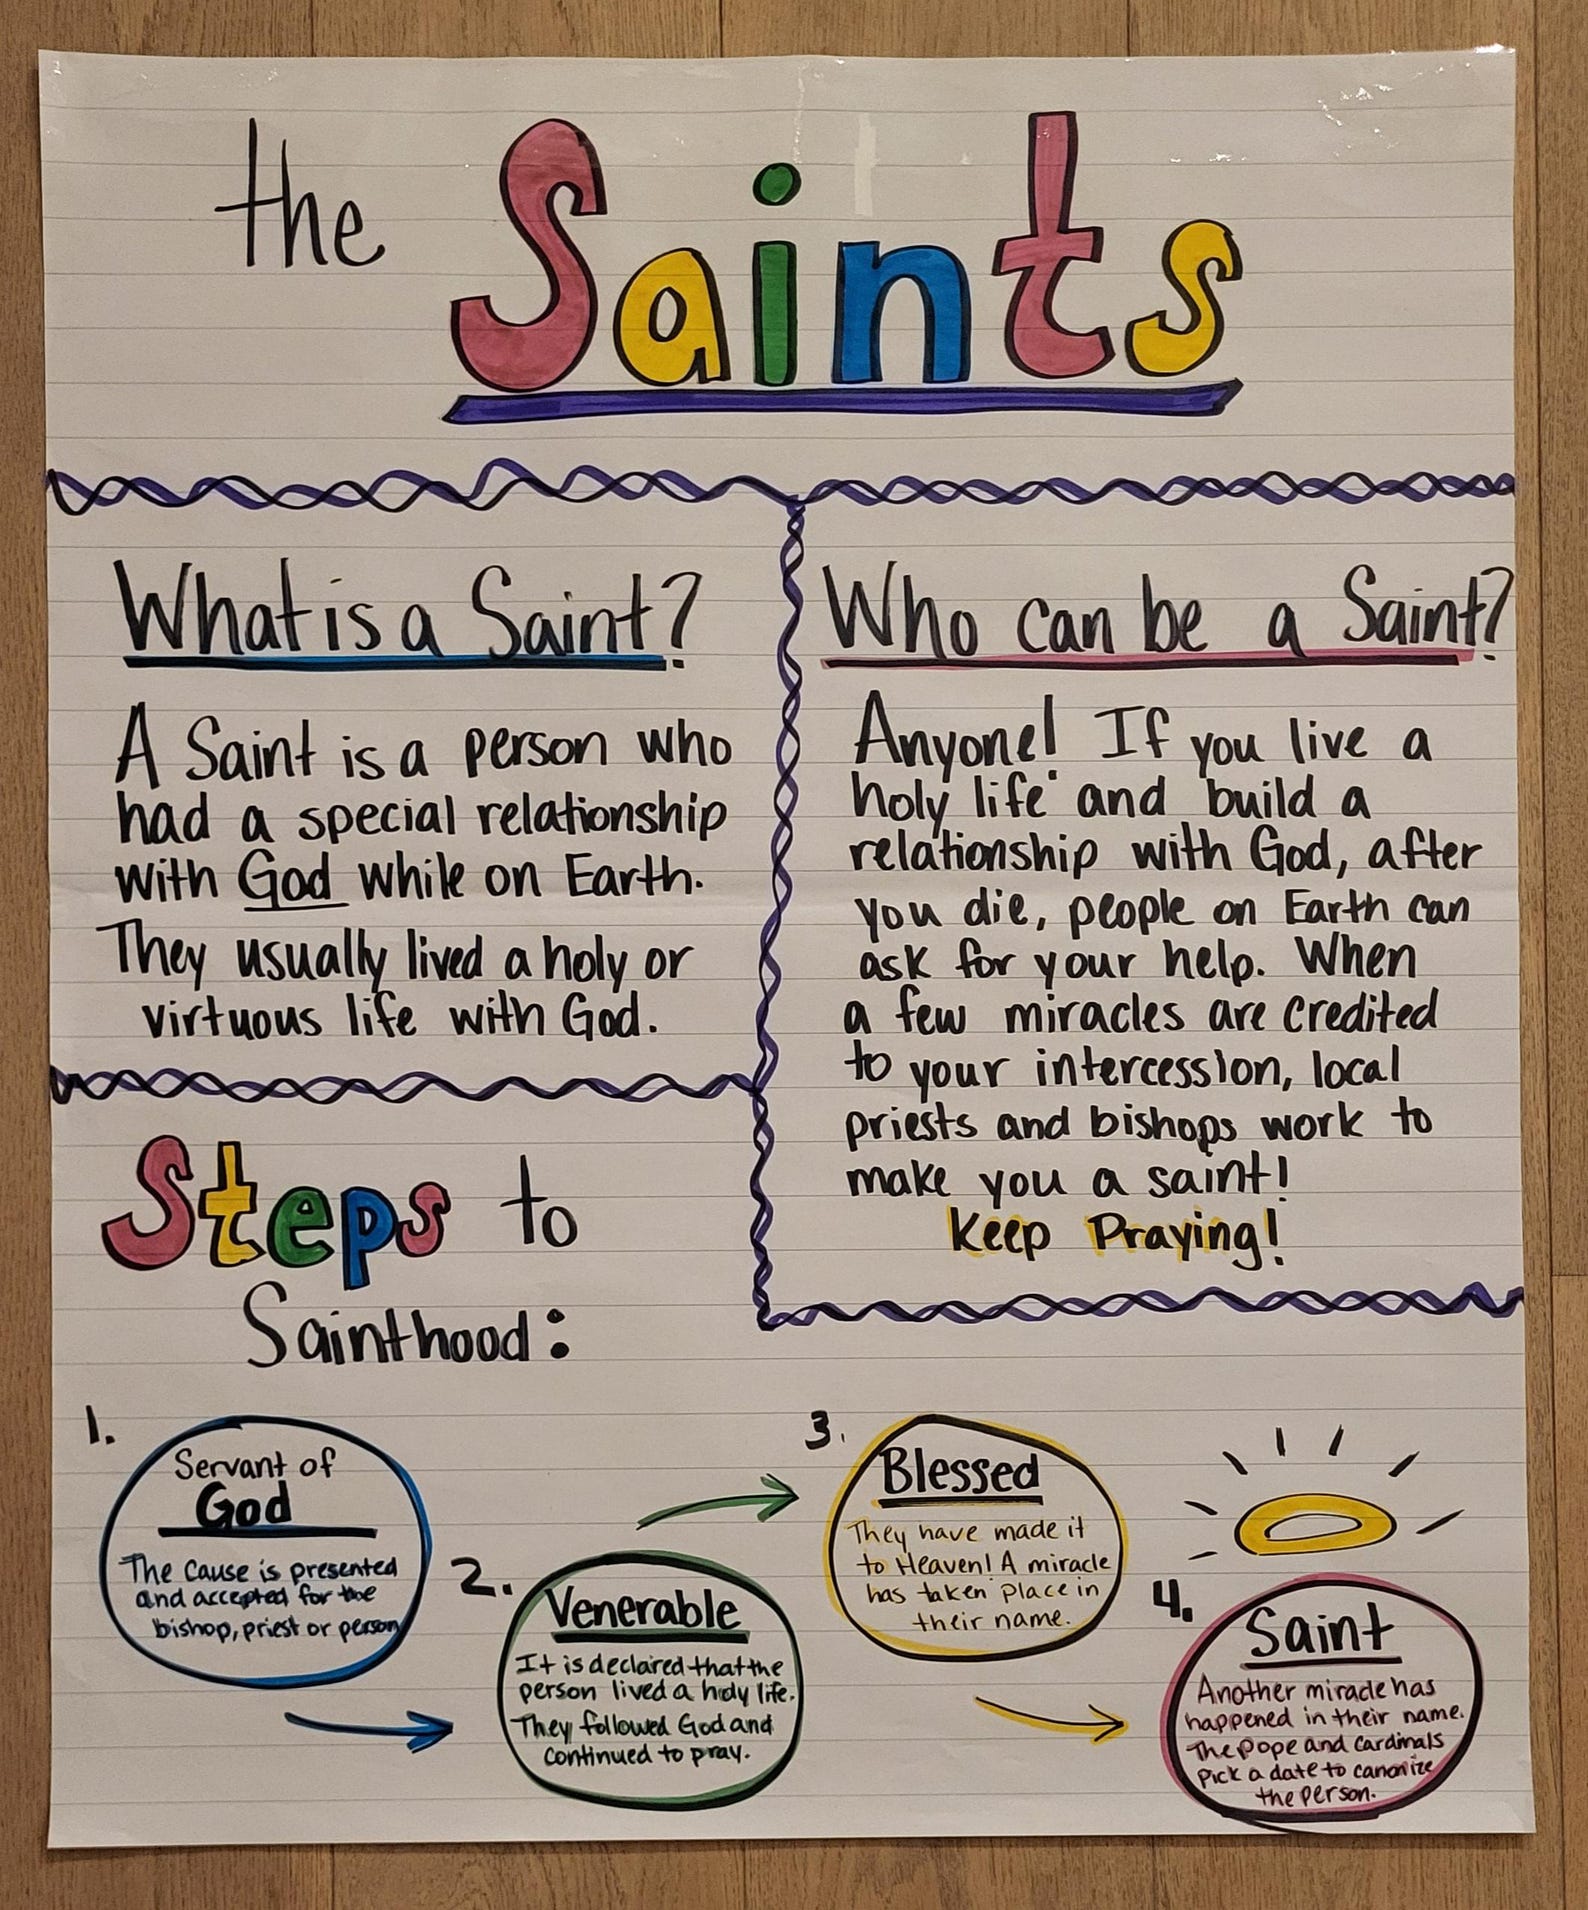 the Saints
What is a Saint?
A Saint is a person who
had a special relationship
with God while on Earth.
They usually lived a holy or
virtuous life with God.
Who can be a Saint?
Anyone! If you live a
holy life and build a
relationship with God, after
you die, people on Earth can
ask for your help. When
a few miracles are credited
to your intercession, local
priests and bishops work to
make you a saint!
Keep Praying!
Steps to
Sainthood:
1.
Servant of
God
The cause is presented
and accepted for the
bishop, priest or person
2.
Venerable
It is declared that the
person lived a holy life.
They followed God and
continued to pray.
3.
Blessed
They have made it
to Heaven! A miracle
has taken place in
their name.
4.
Saint
Another miracle has
happened in their name.
The Pope and Cardinals
pick a date to canonize
the person.